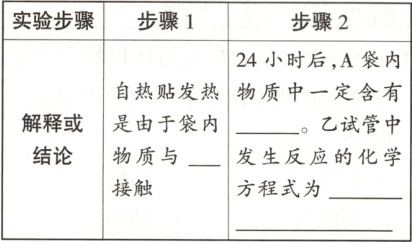 实验步骤 步骤 1 步骤 2
解释或
结论
自热贴发热
是由于袋内
物质与 ___
接触
24 小时后,A 袋内
物质中一定含有
______。乙试管中
发生反应的化学
方程式为 _______
_______________